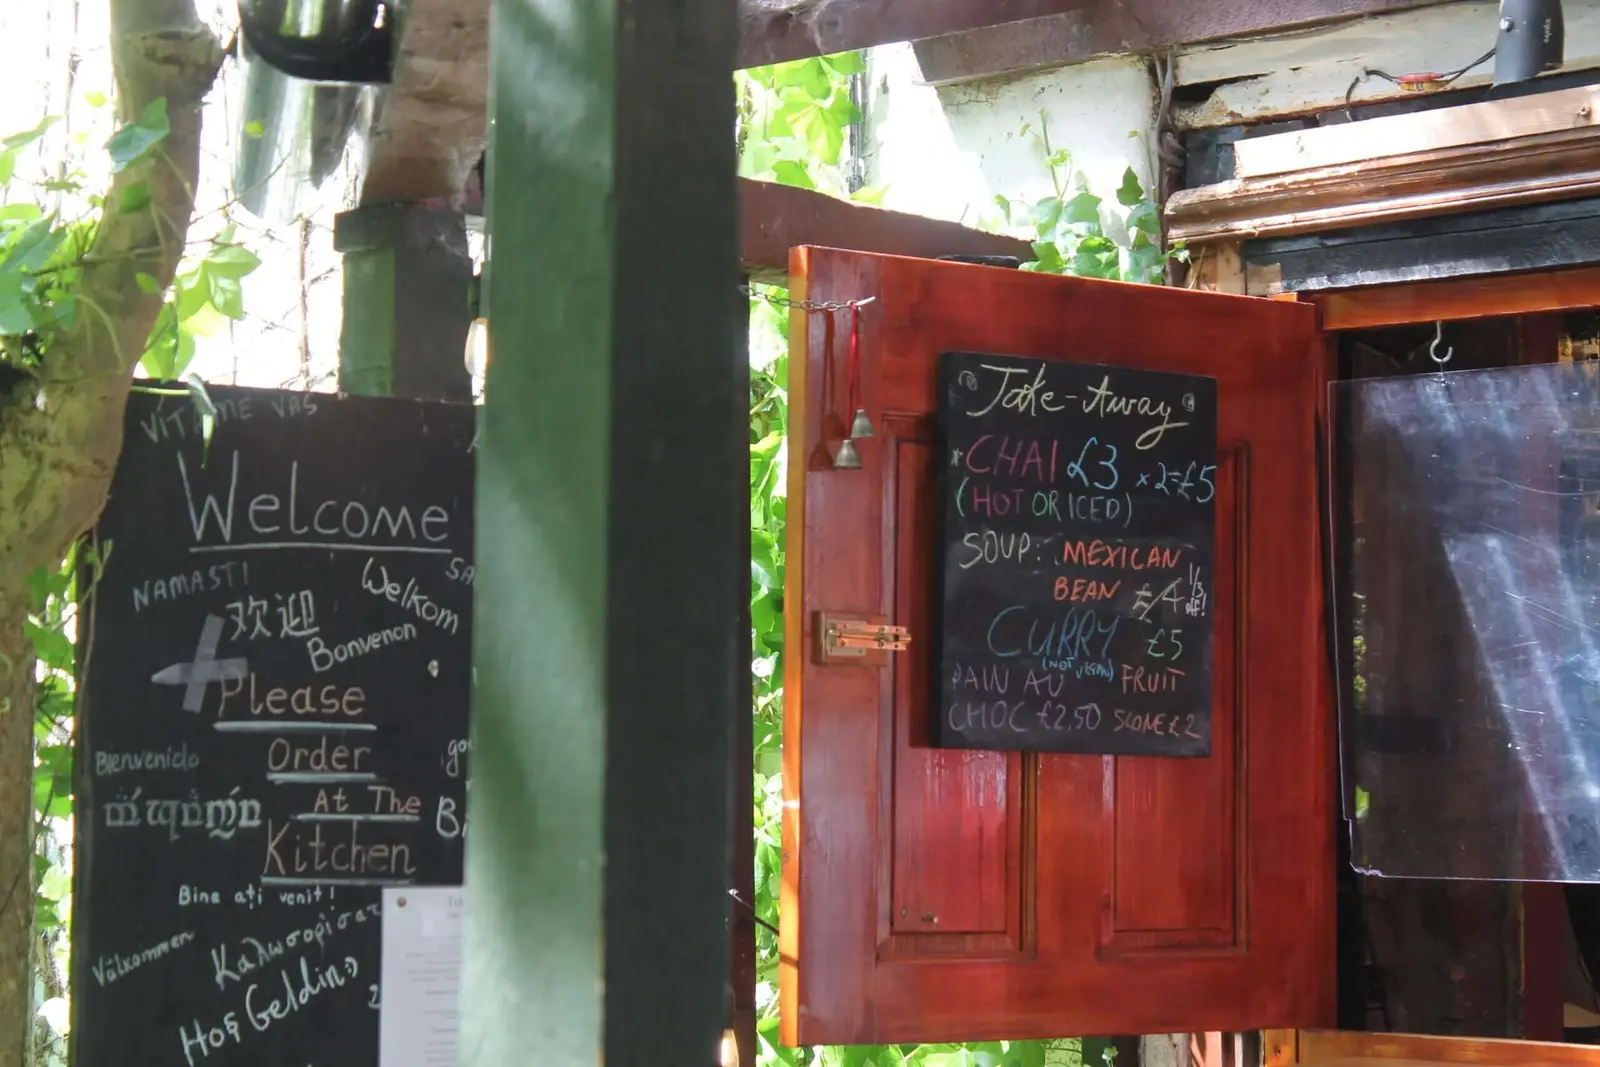 VÍTÁME VÁS
Welcome
NAMASTI
Welkom
SA
欢迎
Bonvenon
Please
Bienvenido
Order
go
At The
Bi
Kitchen
Bine ați venit!
Välkommen
Καλωσορίσατ
Hoş Geldin
Take-Away
* CHAI £3 x2=£5
(HOT OR ICED)
SOUP: MEXICAN
BEAN £4 1/3 off!
CURRY £5
(NOT VEGAN)
PAIN AU FRUIT
CHOC £2,50 SCONE £2